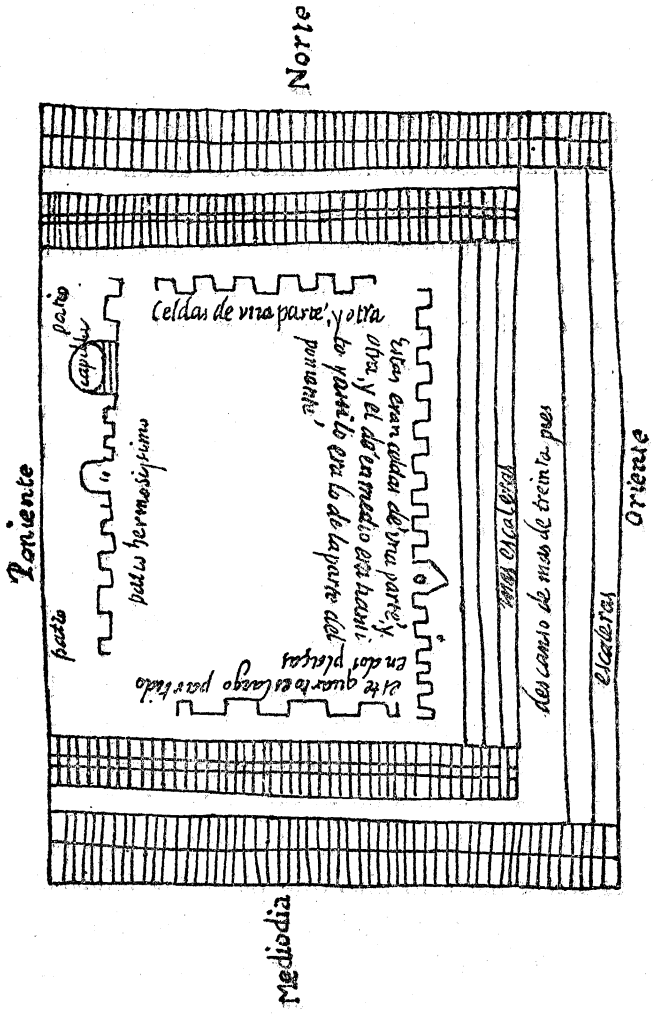 Norte
Poniente
patio
capilla
patio
patio hermosissimo
Celdas de vna parte, y otra
Estas eran celdas de vna parte, y
otra, y el de en medio era transi
to yassi lo era lo de la parte del
poniente
este quarto es largo partido
en dos pieças
escaleras
descanso de mas de treinta pies
escaleras
Oriente
Mediodia